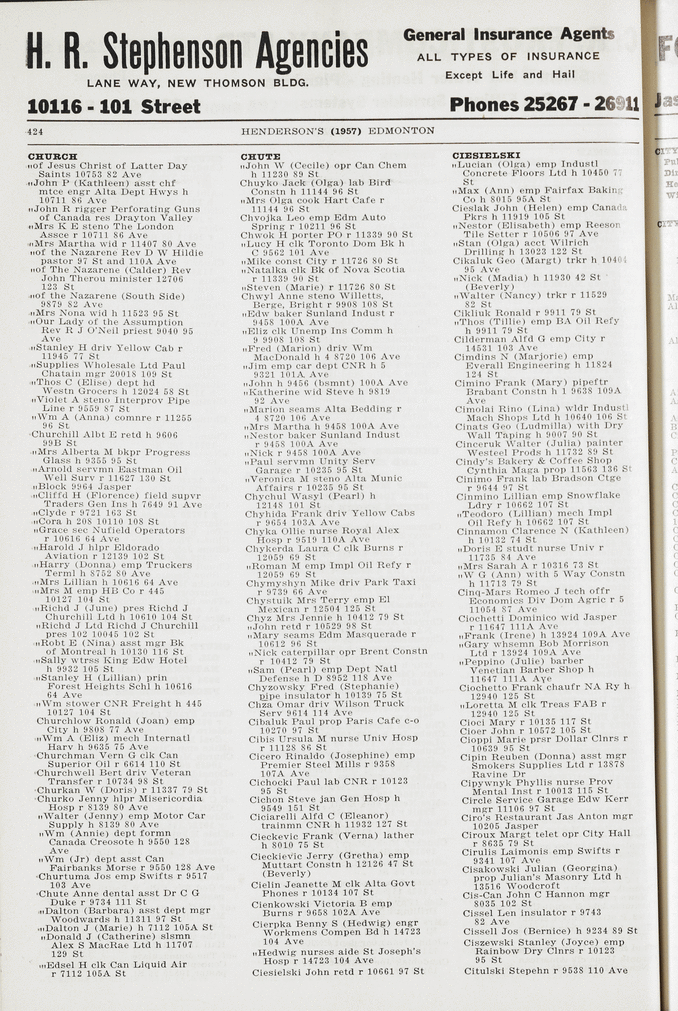 H. R. Stephenson Agencies
LANE WAY, NEW THOMSON BLDG.
General Insurance Agents
ALL TYPES OF INSURANCE
Except Life and Hail
10116 - 101 Street
Phones 25267 - 26911
424
HENDERSON'S (1957) EDMONTON
CHURCH
„of Jesus Christ of Latter Day
Saints 10753 82 Ave
„John P (Kathleen) asst chf
mtce engr Alta Dept Hwys h
10711 86 Ave
„John R rigger Perforating Guns
of Canada res Drayton Valley
„Mrs K E steno The London
Assce r 10711 86 Ave
„Mrs Martha wid r 11407 80 Ave
„of the Nazarene Rev D W Hildie
pastor 97 St and 110A Ave
„of The Nazarene (Calder) Rev
John Therou minister 12706
123 St
„of the Nazarene (South Side)
9879 82 Ave
„Mrs Nona wid h 11523 95 St
„Our Lady of the Assumption
Rev R J O'Neil priest 9040 95
Ave
„Stanley H driv Yellow Cab r
11945 77 St
„Supplies Wholesale Ltd Paul
Chatain mgr 20018 109 St
„Thos C (Elise) dept hd
Westn Grocers h 12024 58 St
„Violet A steno Interprov Pipe
Line r 9559 87 St
„Wm A (Anna) comnre r 11255
96 St
Churchill Albt E retd h 9606
99B St
„Mrs Alberta M bkpr Progress
Glass h 9355 95 St
„Arnold servmn Eastman Oil
Well Surv r 11627 130 St
„Block 9964 Jasper
„Cliffd H (Florence) field supvr
Traders Gen Ins h 7649 91 Ave
„Clyde r 9721 163 St
„Cora h 208 10110 108 St
„Grace sec Nufield Operators
r 10616 64 Ave
„Harold J hlpr Eldorado
Aviation r 12139 102 St
„Harry (Donna) emp Truckers
Terml h 8752 80 Ave
„Mrs Lillian h 10616 64 Ave
„Mrs M emp HB Co r 445
10127 104 St
„Richd J (June) pres Richd J
Churchill Ltd h 10610 104 St
„Richd J Ltd Richd J Churchill
pres 102 10045 102 St
„Robt E (Nina) asst mgr Bk
of Montreal h 10130 116 St
„Sally wtrss King Edw Hotel
h 9932 105 St
„Stanley H (Lillian) prin
Forest Heights Schl h 10616
64 Ave
„Wm stower CNR Freight h 445
10127 104 St
Churchlow Ronald (Joan) emp
City h 9808 77 Ave
„Wm A (Eliz) mech Internatl
Harv h 9635 75 Ave
Churchman Vern G clk Can
Superior Oil r 6614 110 St
Churchwell Bert driv Veteran
Transfer r 10734 98 St
Churkan W (Doris) r 11337 79 St
Churko Jenny hlpr Misericordia
Hosp r 8139 80 Ave
„Walter (Jenny) emp Motor Car
Supply h 8139 80 Ave
„Wm (Annie) dept formn
Canada Creosote h 9550 128
Ave
„Wm (Jr) dept asst Can
Fairbanks Morse r 9550 128 Ave
Churtuma Jos emp Swifts r 9517
103 Ave
Chute Anne dental asst Dr C G
Duke r 9734 111 St
„Dalton (Barbara) asst dept mgr
Woodwards h 11311 97 St
„Dalton J (Marie) h 7112 105A St
„Donald J (Catherine) slsmn
Alex S MacRae Ltd h 11707
129 St
„Edsel H clk Can Liquid Air
r 7112 105A St
CHUTE
„John W (Cecile) opr Can Chem
h 11230 89 St
Chuyko Jack (Olga) lab Bird
Constn h 11144 96 St
„Mrs Olga cook Hart Cafe r
11144 96 St
Chvojka Leo emp Edm Auto
Spring r 10211 96 St
Chwok H porter PO r 11339 90 St
„Lucy H clk Toronto Dom Bk h
C 9562 101 Ave
„Mike const City r 11726 80 St
„Natalka clk Bk of Nova Scotia
r 11339 90 St
„Steven (Marie) r 11726 80 St
Chwyl Anne steno Willets,
Berge, Bright r 9908 108 St
„Edw baker Sunland Indust r
9458 100A Ave
„Eliz clk Unemp Ins Comm h
9 9908 108 St
„Fred (Marion) driv Wm
MacDonald h 4 8720 106 Ave
„Jim emp car dept CNR h 5
9321 101A Ave
„John h 9456 (bsmnt) 100A Ave
„Katherine wid Steve h 9819
92 Ave
„Marion seams Alta Bedding r
4 8720 106 Ave
„Mrs Martha h 9458 100A Ave
„Nestor baker Sunland Indust
r 9458 100A Ave
„Nick r 9458 100A Ave
„Paul servmn Unity Serv
Garage r 10235 95 St
„Veronica M steno Alta Munic
Affairs r 10235 95 St
Chychul Wasyl (Pearl) h
12148 101 St
Chyhida Frank driv Yellow Cabs
r 9654 103A Ave
Chyka Ollie nurse Royal Alex
Hosp r 9519 110A Ave
Chykerda Laura C clk Burns r
12059 69 St
„Roman M emp Impl Oil Refy r
12059 69 St
Chymyshyn Mike driv Park Taxi
r 9739 66 Ave
Chystuik Mrs Terry emp El
Mexican r 12504 125 St
Chyz Mrs Jennie h 10412 79 St
„John retd r 10529 98 St
„Mary seams Edm Masquerade r
10612 96 St
„Nick caterpillar opr Brent Constn
r 10412 79 St
„Sam (Pearl) emp Dept Natl
Defense h D 8952 118 Ave
Chyzowsky Fred (Stephanie)
pipe insulator h 10139 75 St
Chza Omar driv Wilson Truck
Serv 9614 114 Ave
Cibaluk Paul prop Paris Cafe c-o
10270 97 St
Cibis Ursula M nurse Univ Hosp
r 11128 86 St
Cicero Rinaldo (Josephine) emp
Premier Steel Mills r 9358
107A Ave
Cichocki Paul lab CNR r 10123
95 St
Cichon Steve jan Gen Hosp h
9549 151 St
Ciciarelli Alfd C (Eleanor)
trainmn CNR h 11932 127 St
Cieckevic Frank (Verna) lather
h 8010 75 St
Cieckievic Jerry (Gretha) emp
Muttart Constn h 12126 47 St
(Beverly)
Cielin Jeanette M clk Alta Govt
Phones r 10134 107 St
Cienkowski Victoria B emp
Burns r 9658 102A Ave
Cierpka Benny S (Hedwig) engr
Workmens Compen Bd h 14723
104 Ave
„Hedwig nurses aide St Joseph's
Hosp r 14723 104 Ave
Ciesielski John retd r 10661 97 St
CIESIELSKI
„Lucian (Olga) emp Industl
Concrete Floors Ltd h 10450 77
St
„Max (Ann) emp Fairfax Baking
Co h 8015 95A St
Cieslak John (Helen) emp Canada
Pkrs h 11919 105 St
„Nestor (Elisabeth) emp Reeson
Tile Setter r 10506 97 Ave
„Stan (Olga) acct Wilrich
Drilling h 13023 122 St
Cikaluk Geo (Margt) trkr h 10404
95 Ave
„Nick (Madia) h 11930 42 St
(Beverly)
„Walter (Nancy) trkr r 11529
82 St
Cikliuk Ronald r 9911 79 St
„Thos (Tillie) emp BA Oil Refy
h 9911 79 St
Cilderman Alfd G emp City r
14531 103 Ave
Cimdins N (Marjorie) emp
Everall Engineering h 11824
124 St
Cimino Frank (Mary) pipeftr
Brabant Constn h 1 9638 109A
Ave
Cimolai Rino (Lina) wldr Industl
Mach Shops Ltd h 10640 106 St
Cinats Geo (Ludmilla) with Dry
Wall Taping h 9007 90 St
Cinceruk Walter (Julia) painter
Westeel Prods h 11732 89 St
Cindy's Bakery & Coffee Shop
Cynthia Maga prop 11563 136 St
Cinimo Frank lab Bradson Ctge
r 9644 97 St
Cinmino Lillian emp Snowflake
Ldry r 10662 107 St
„Teodoro (Lillian) mech Impl
Oil Refy h 10662 107 St
Cinnamon Clarence N (Kathleen)
h 10132 74 St
„Doris E studt nurse Univ r
11735 84 Ave
„Mrs Sarah A r 10316 73 St
„W G (Ann) with 5 Way Constn
h 11713 79 St
Cinq-Mars Romeo J tech offr
Economics Div Dom Agric r 5
11054 87 Ave
Ciochetti Dominico wid Jasper
r 11647 111A Ave
„Frank (Irene) h 13924 109A Ave
„Gary whsemn Bob Morrison
Ltd r 13924 109A Ave
„Peppino (Julie) barber
Venetian Barber Shop h
11647 111A Ave
Ciochetto Frank chaufr NA Ry h
12940 125 St
„Loretta M clk Treas FAB r
12940 125 St
Cioci Mary r 10135 117 St
Cioer John r 10572 105 St
Cioppi Marie prsr Dollar Clnrs r
10639 95 St
Cipin Reuben (Donna) asst mgr
Smokers Supplies Ltd r 13878
Ravine Dr
Cipywnyk Phyllis nurse Prov
Mental Inst r 10013 115 St
Circle Service Garage Edw Kerr
mgr 11106 97 St
Ciro's Restaurant Jas Anton mgr
10205 Jasper
Ciroux Margt telet opr City Hall
r 8635 79 St
Cirulis Laimonis emp Swifts r
9341 107 Ave
Cisakowski Julian (Georgina)
prop Julian's Masonry Ltd h
13516 Woodcroft
Cis-Can John C Hannon mgr
8035 102 St
Cissel Len insulator r 9743
82 Ave
Cissell Jos (Bernice) h 9234 89 St
Ciszewski Stanley (Joyce) emp
Rainbow Dry Clnrs r 10123
95 St
Citulski Stepehn r 9538 110 Ave